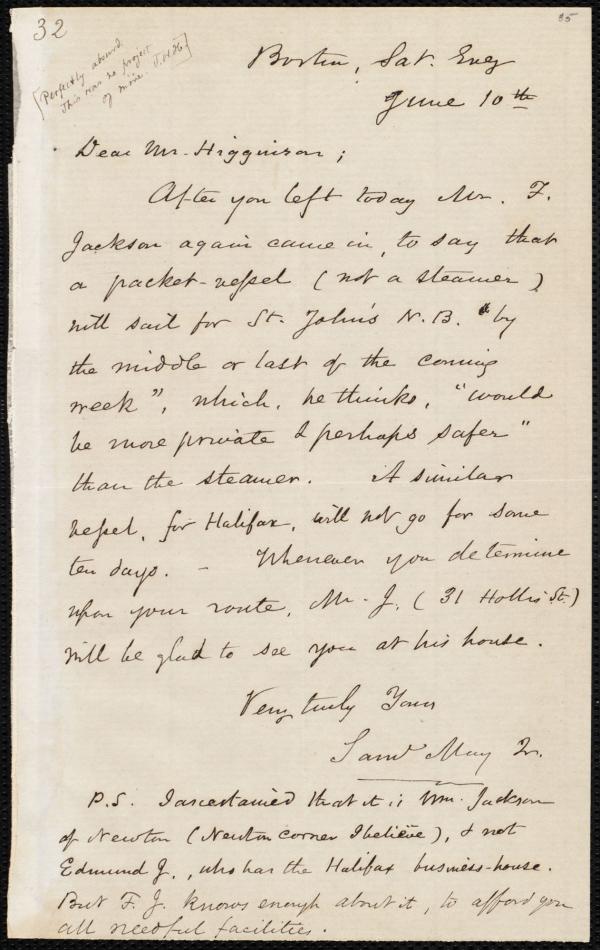 32
35
[Perfectly absurd.
This was no project
of mine. T.W.H.]
Boston, Sat. Eveg
June 10th
Dear Mr. Higginson;
After you left today Mr. F.
Jackson again came in, to say that
a packet-vessel (not a steamer)
will sail for St. John's N.B. "by
the middle or last of the coming
week", which, he thinks, "would
be more private & perhaps safer"
than the steamer. A similar
vessel, for Halifax, will not go for some
ten days. - Whenever you determine
upon your route, Mr. J. (31 Hollis St.)
will be glad to see you at his house.
Very truly Yours
Saml May Jr.
P.S. I ascertained that it is Wm. Jackson
of Newton (Newton corner I believe), & not
Edmund J., who has the Halifax business-house.
But F. J. knows enough about it, to afford you
all needful facilities.